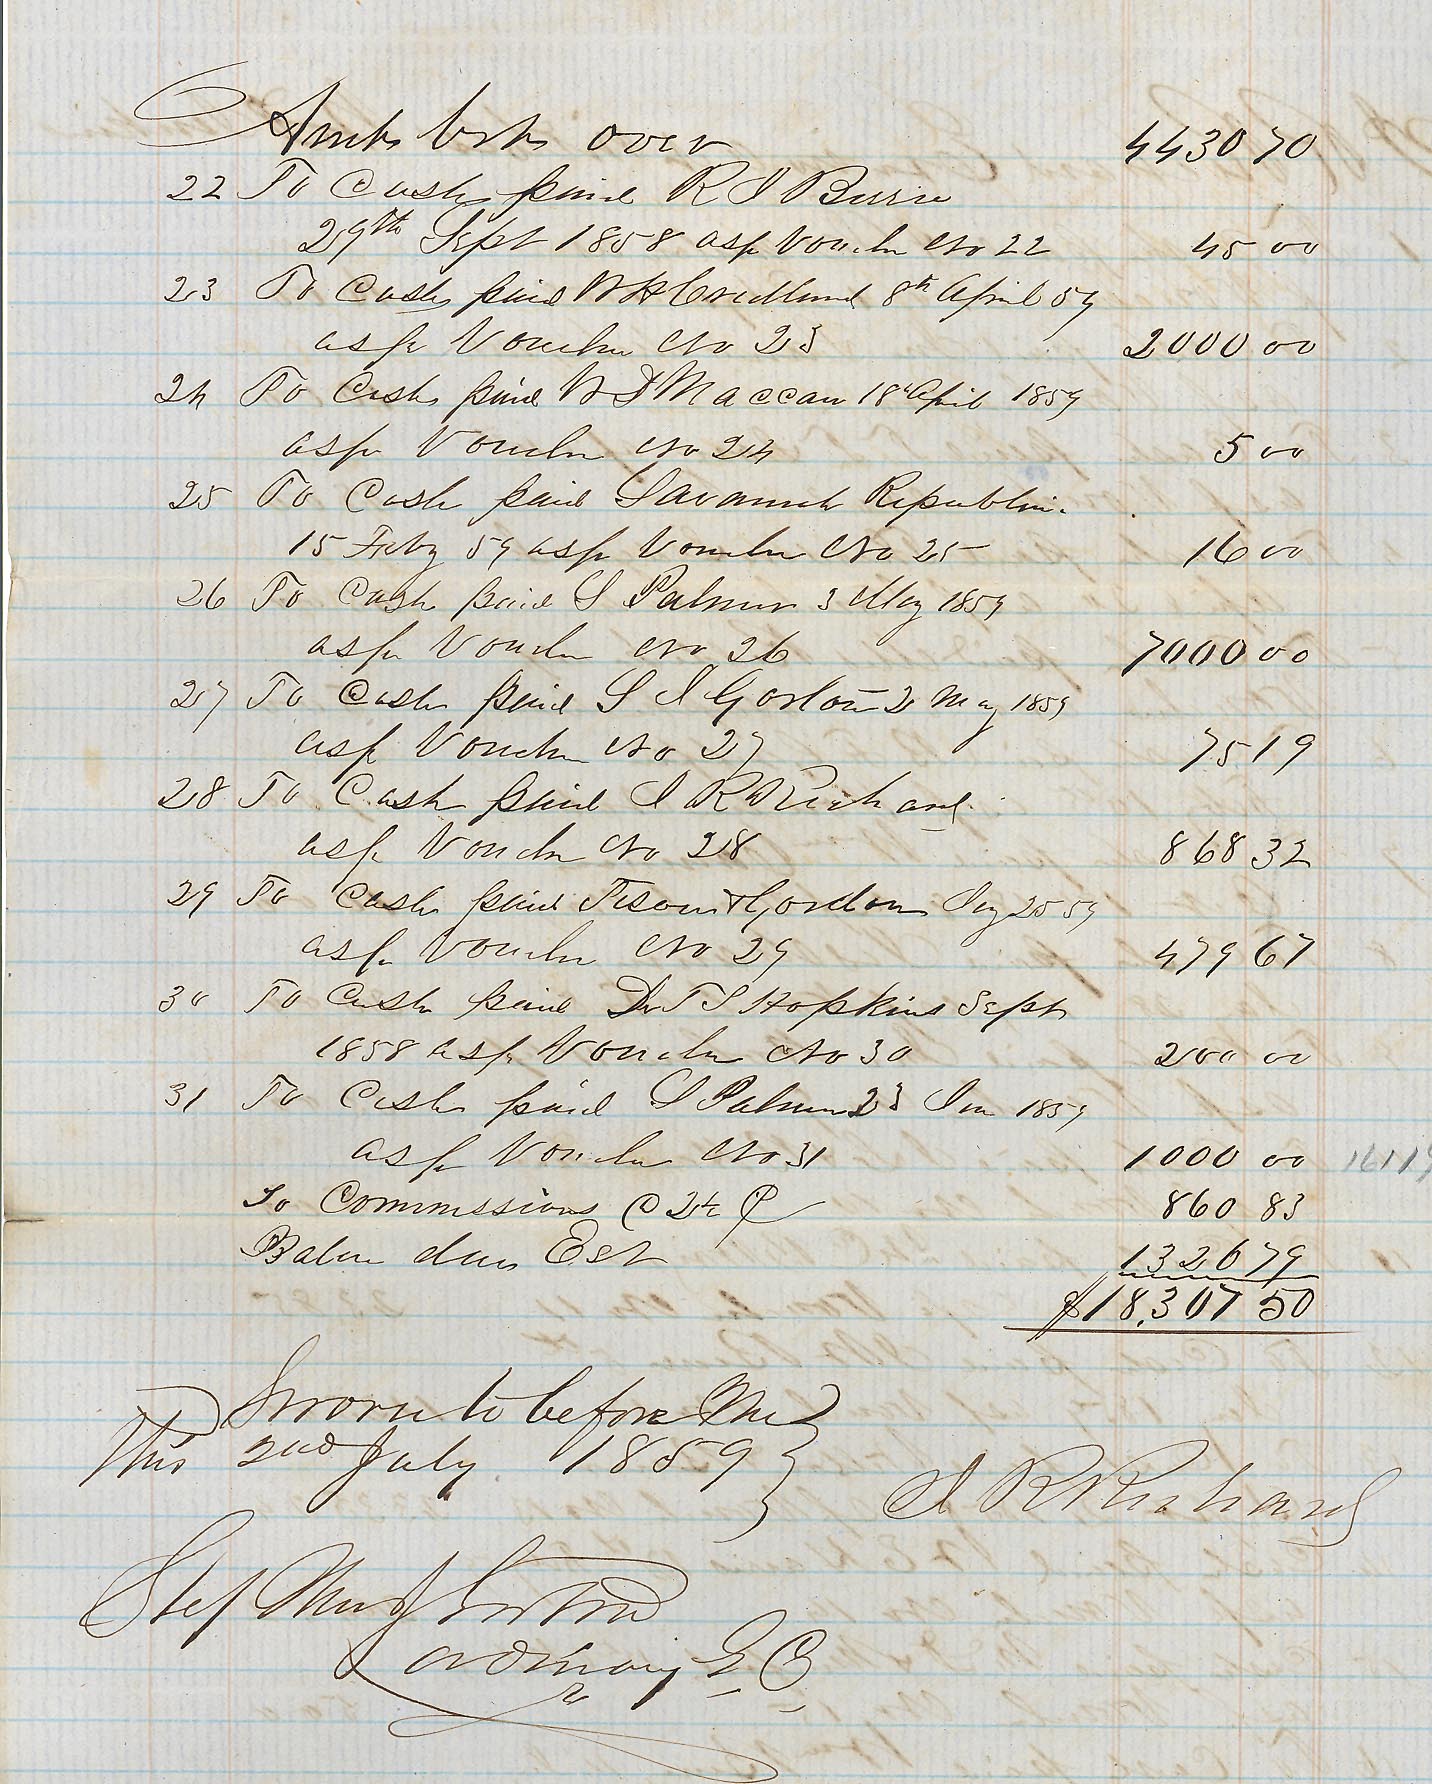 Amts brt over 4430 70
22 To Cash paid R S Burrie
29th Sept 1858 asp Voucher No 22 45 00
23 To Cash paid W H 8th April 59
asp Voucher No 23 2000 00
24 To Cash paid W D Maccaw 18th April 1859
asp Voucher No 24 5 00
25 To Cash paid Savannah Republin.
15 Feby 59 asp Voucher No 25 16 00
26 To Cash paid S Palmer 3 May 1859
asp Voucher No 26 7000 00
27 To Cash paid S I Gorton 2 May 1859
asp Voucher No 27 75 19
28 To Cash paid I R Richard
asp Voucher No 28 868 32
29 To Cash paid Tison & Gordon 25 59
asp Voucher No 29 479 67
30 To Cash paid Dr T S Hopkins Sept
1858 asp Voucher No 30 200 00
31 To Cash paid S Palmer 23 Jan 1859
asp Voucher No 31 1000 00 16119
To Commissions @ 2½
Balance due Est 860 83
1326 79
$18,307 50
Sworn to before Me
This 2nd July 1859
I R Richard
Ordinary G. C.